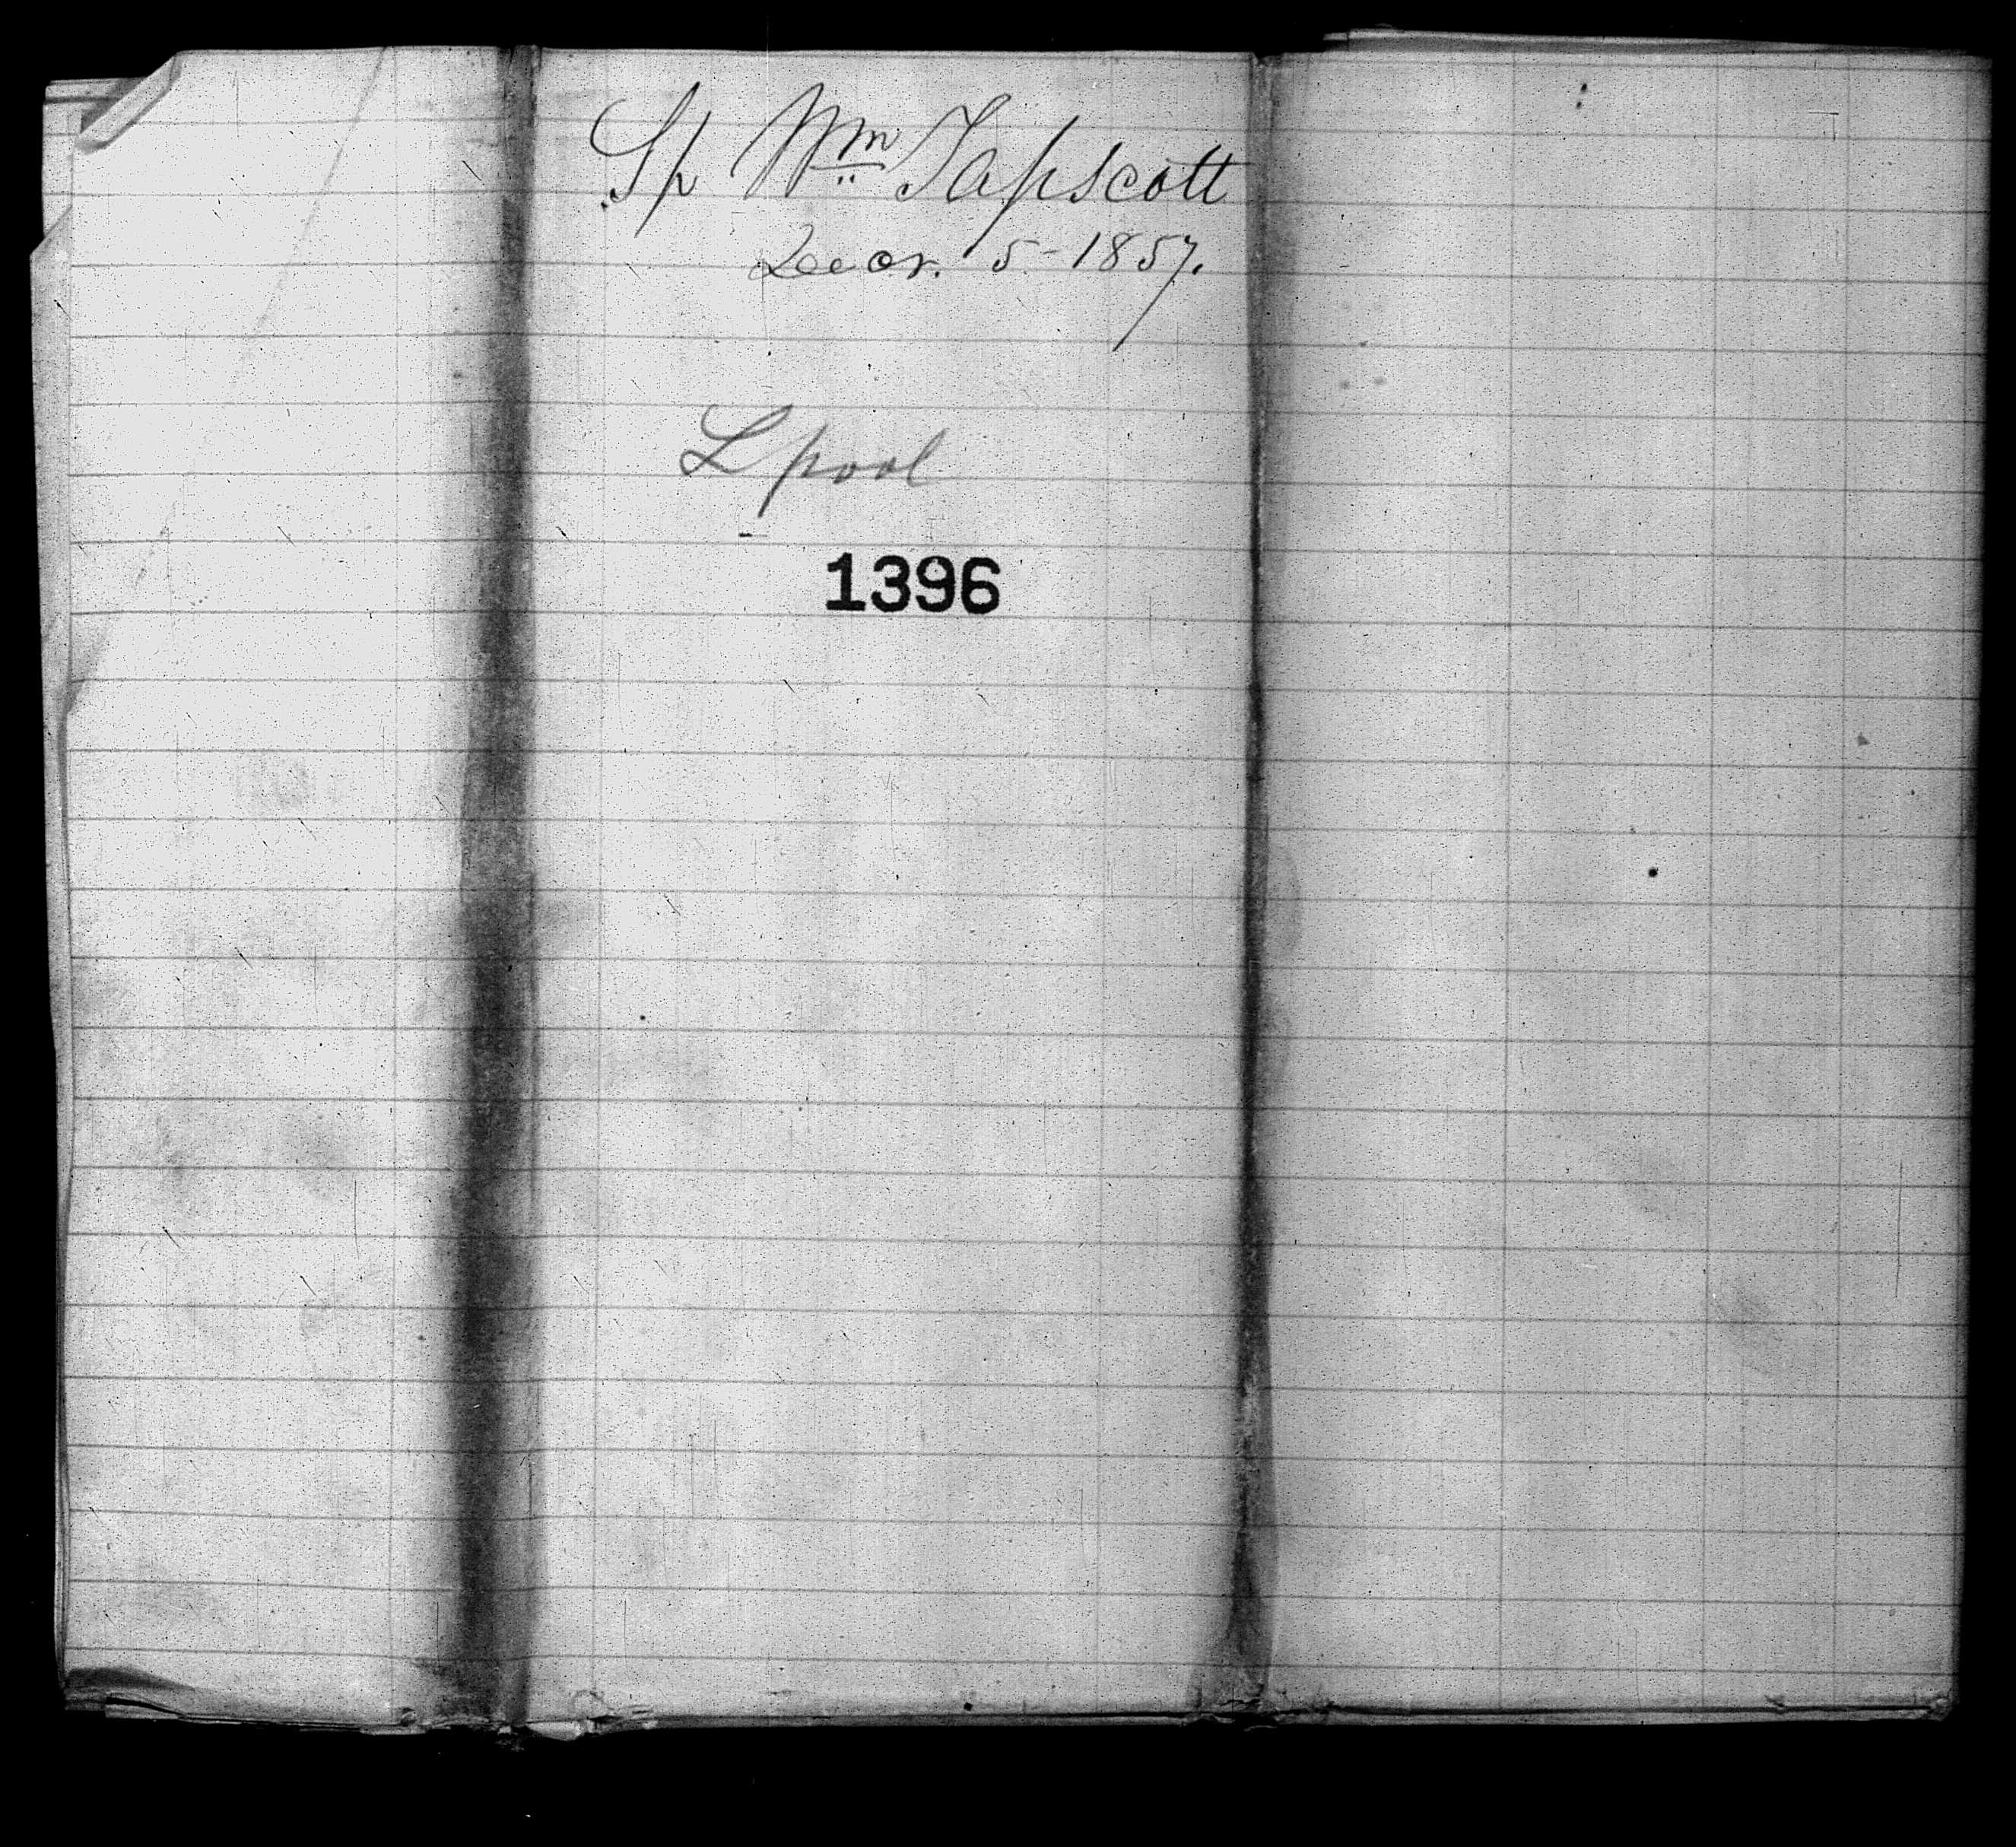 Sp Wm Tapscott
Decr. 5-1857.
Lpool
1396